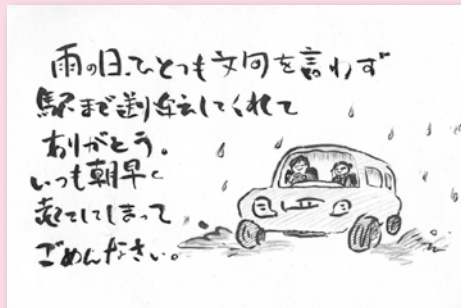 雨の日、ひとつも文句を言わず
駅まで送り迎えしてくれて
ありがとう。
いつも朝早く
起こしてしまって
ごめんなさい。